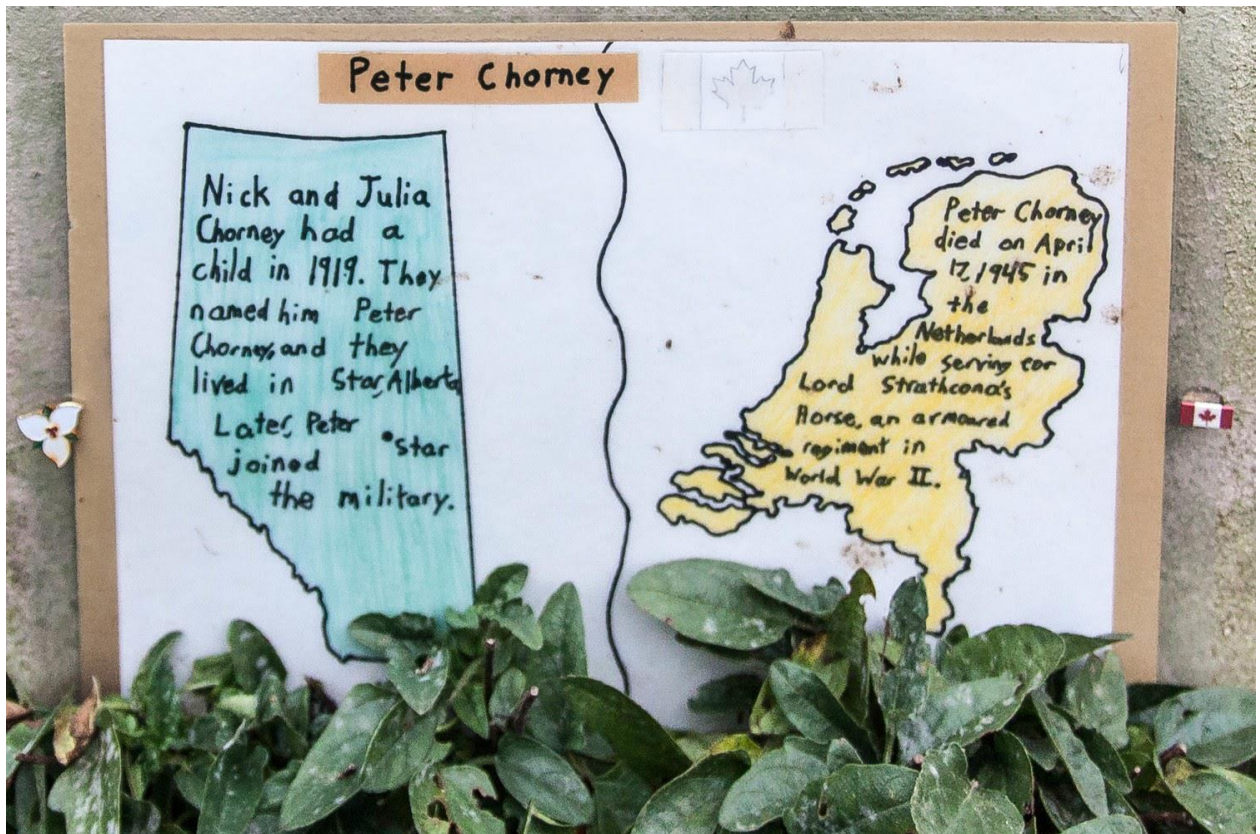 Peter Chorney
Nick and Julia
Chorney had a
child in 1919. They
named him Peter
Chorney, and they
lived in Star, Alberta
Later, Peter
•star
joined
the military.
Peter Chorney
died on April
17, 1945 in
the
Netherlands
while serving for
Lord Strathcona's
Horse, an armoured
regiment in
World War II.